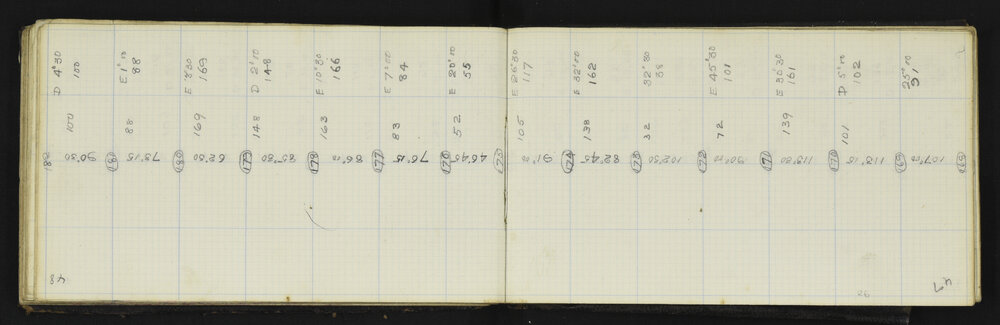 D 4°30
100
100
182
90°30
E 1°10
88
88
181
78°15
E 8°30
169
169
180
62°30
D 2°00
148
148
179
85°30
E 10°30
166
163
178
86°00
E 7°00
84
83
177
76°15
E 20°00
55
52
176
46°45
E 26°30
117
105
175
91°00
E 32°00
162
138
174
82°45
32°30
38
32
173
102°30
E 45°30
101
72
172
90°00
E 36°30
161
139
171
113°30
D 5°00
102
101
170
113°15
25°00
91
169
107°00
48
47